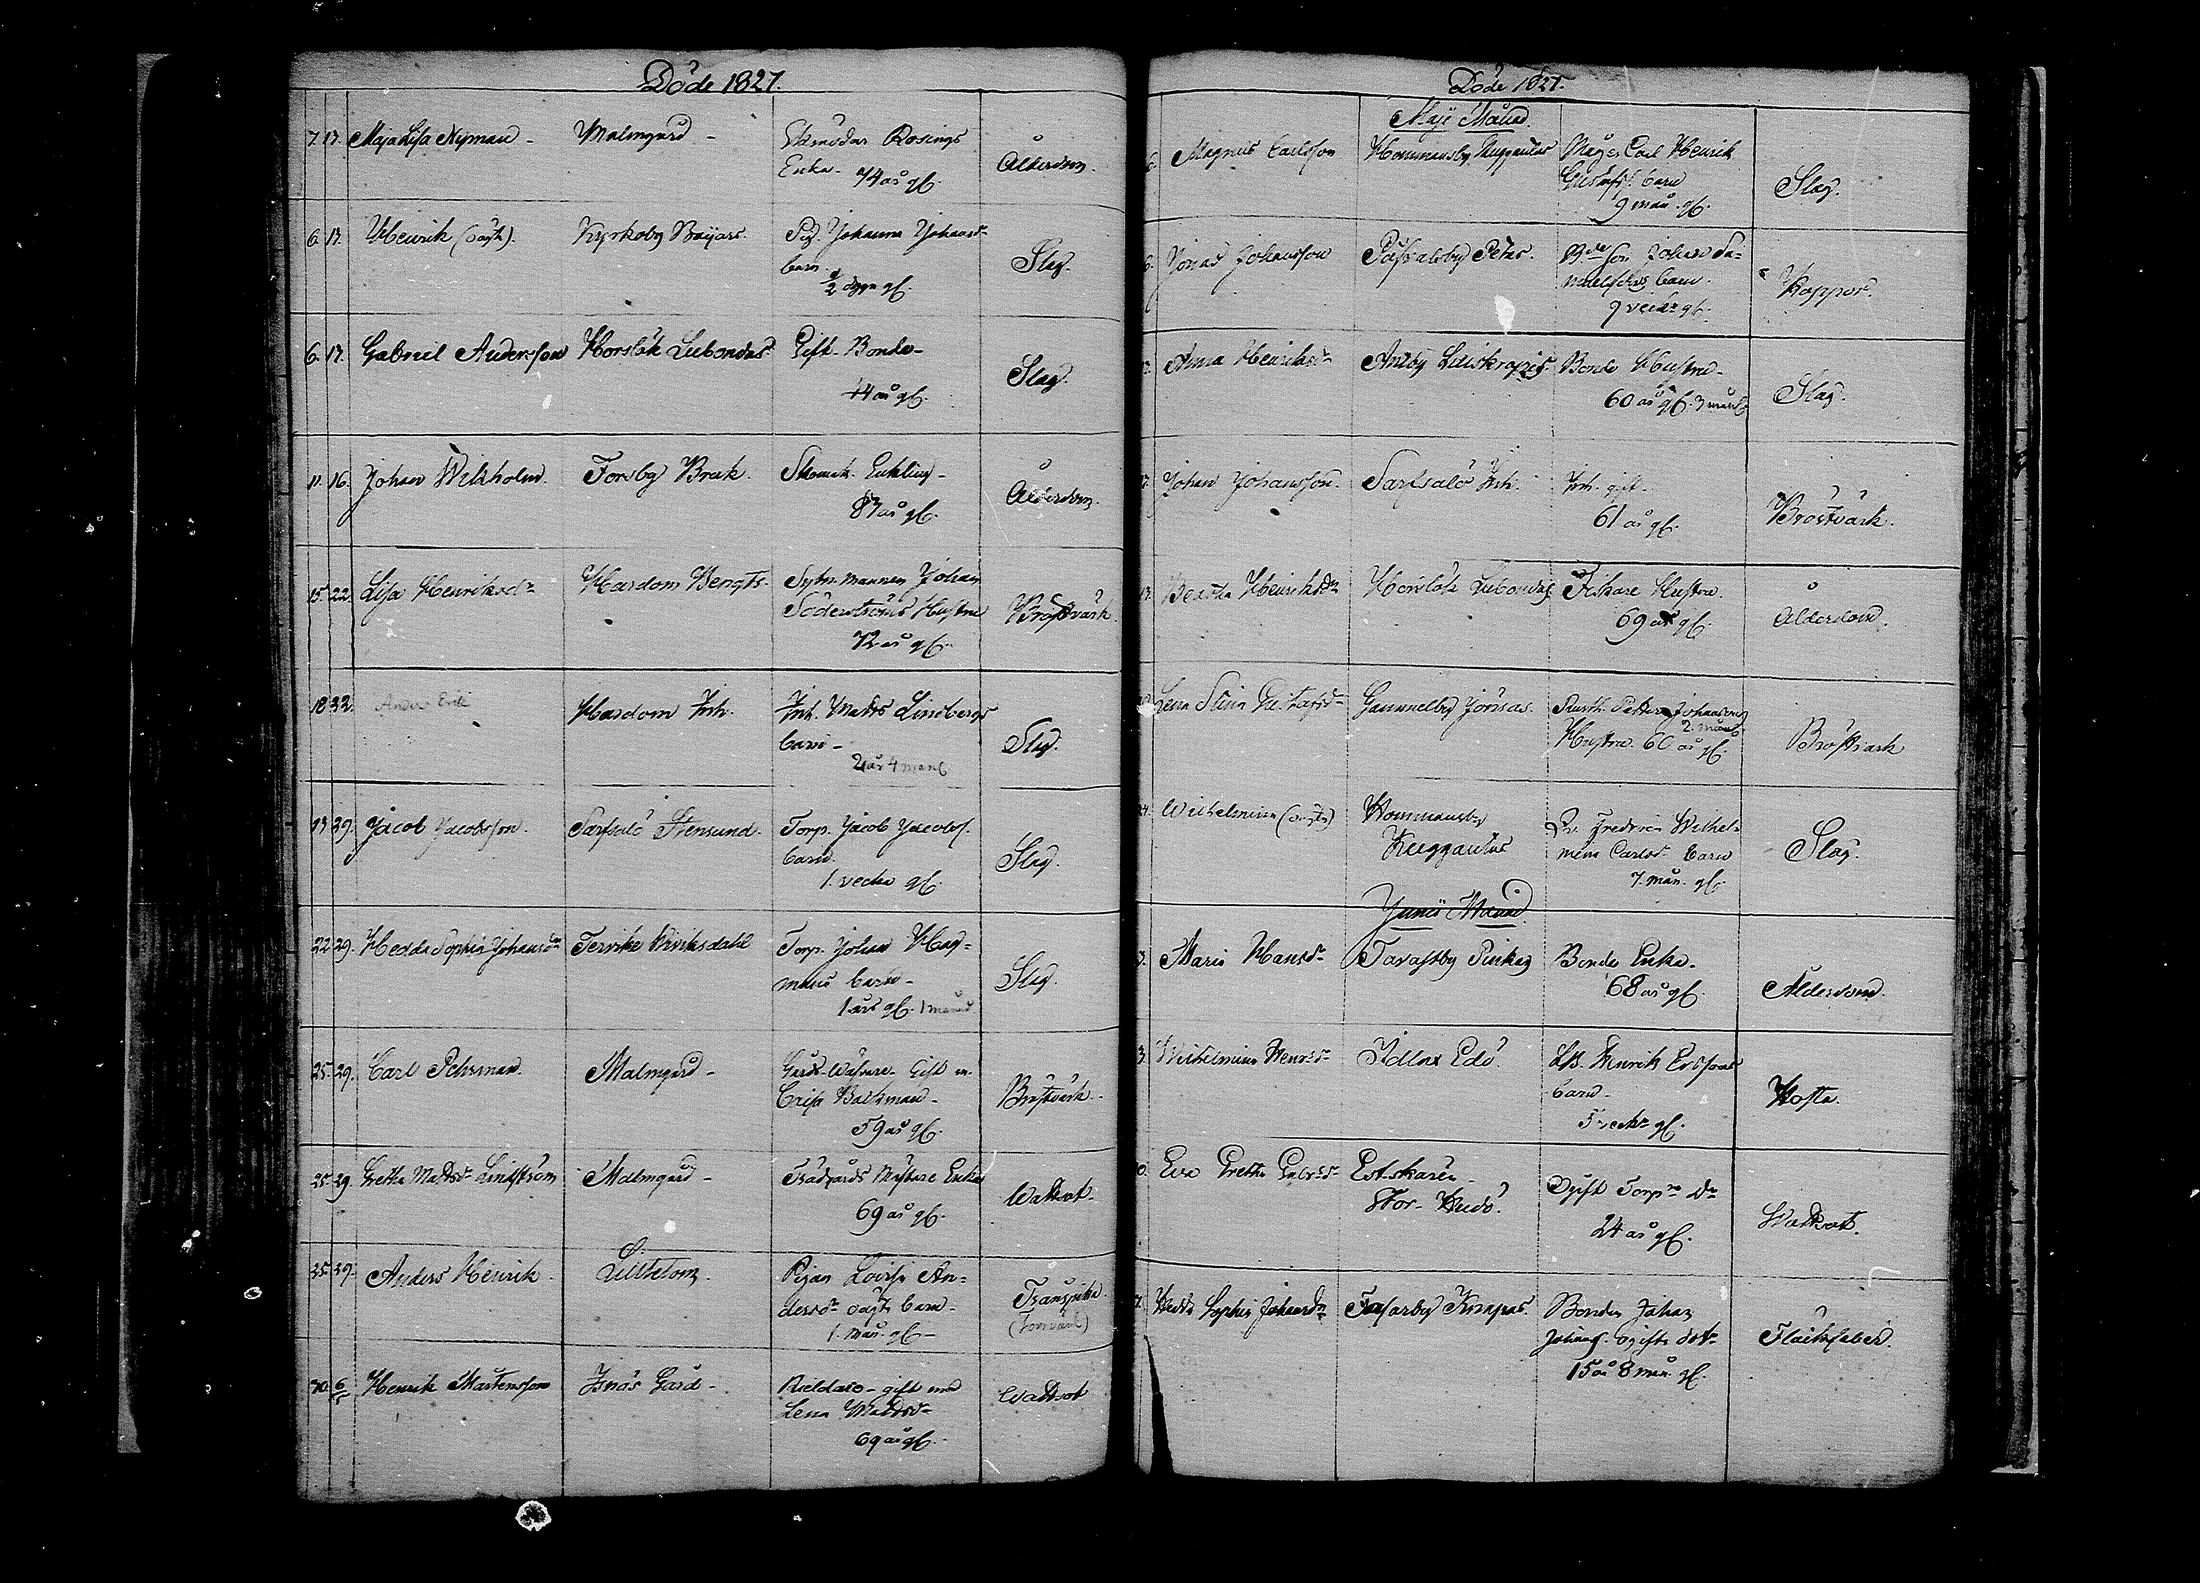 Döde 1827.
7. 17. Maja Lisa Nyman - Malmgård - Rosings
Enka - 74 år gl. Ålderdom.
6. 17. Henrik (oägta). Kyrkoby Böijars Pig. Johanna Johansdr
barn
1/2 dygn gl. Slag.
6. 17. Gabriel Andersson Horslök Lubondas Gift - Bonde -
44 år gl. Slag.
11. 16. Johan Wikholm. Forsby Bruk. Skomak. Enkling -
87 år gl. Ålderdom.
15. 22. Lisa Henriksdr Hardom Bengts. Sytn. mannen Johan
Söderströms Hustru
72 år gl. Bröstvärk
18 32. Hardom Inh. Inh. Matts Lindbergs
barn -
2 år 4 mån Slag.
19 29. Jacob Jacobsson. Sarfsalö Stensund. Torp. Jacob Jacobs.
barn.
1. vecka gl. Slag.
22 29. Hedda Sophia Johansdr Tervike Torp. Johan Hag-
mans barn -
1 års gl. 1 månad Slag.
25. 29. Carl Öhrman Malmgård - Gårds-Wäkare Gift m.
Cajsa -
59 år gl. Bröstvärk.
25. 29. Greta Mattsdr Lindström Malmgård - Trädgårds Mästare Enka
69 år gl. Wattsot.
25. 29. Anders Henrik. Lilltetom. Pigan Lovisa An-
dersdr oägta barn -
1. mån. gl. - Transjuka
30. 6/5 Henrik Mårtensson Isnäs Gård - Rieldare - gift med
Lena Mattsdr
69 år gl. Wattsot
Döde 1827.
Maji Månad.
6. Magnus Carlsson Hommansby Kuggantas Måg. Carl Henrik
Gustafs. barn
9 mån. gl. Slag.
6. Jonas Johansson Påfvalsby Peters. Bde son Johan Sa-
muelssons barn.
9 veckr gl. Koppor.
Anna Henriksdr Antby Bonde Hustru -
60 år gl. 3 mån Slag.
17. Johan Johansson. Sarfsalö Inh. Inh. gift -
61 år gl. Bröstvärk.
19. Beata Henriksdr Horslök Lubondas Fiskare Hustru.
69 år gl. Ålderdom.
Lena Stina Gustafsdr Gammelby Jönsas. Rusth. Petter Johanssons
2. mån
Hustru. 60 år gl. Bröstvärk
24. Wilhelmina (oägta) Hommansby
Kuggantas Pi. Fredrica Wilhel-
mina Carlsdr barn
7. mån. gl. Slag.
Junii Månad
Maria Hansdr Tavastby Pinkas Bonde Enka.
68 år gl. Ålderdom.
3. Wilhelmina Henrsdr Idlax Edö. Henrik Ersssons
barn -
5 veckr gl. Hosta.
Eva Greta Gabrsdr Estskären
Stor- Ogift Torpre dr
24 år gl. Wattsot.
Hedda Sophia Johansdr Tasarby Knapas. Bonden Johan
Johanss. ogifta dotr
15 år 8 mån. gl. Fläckfeber.